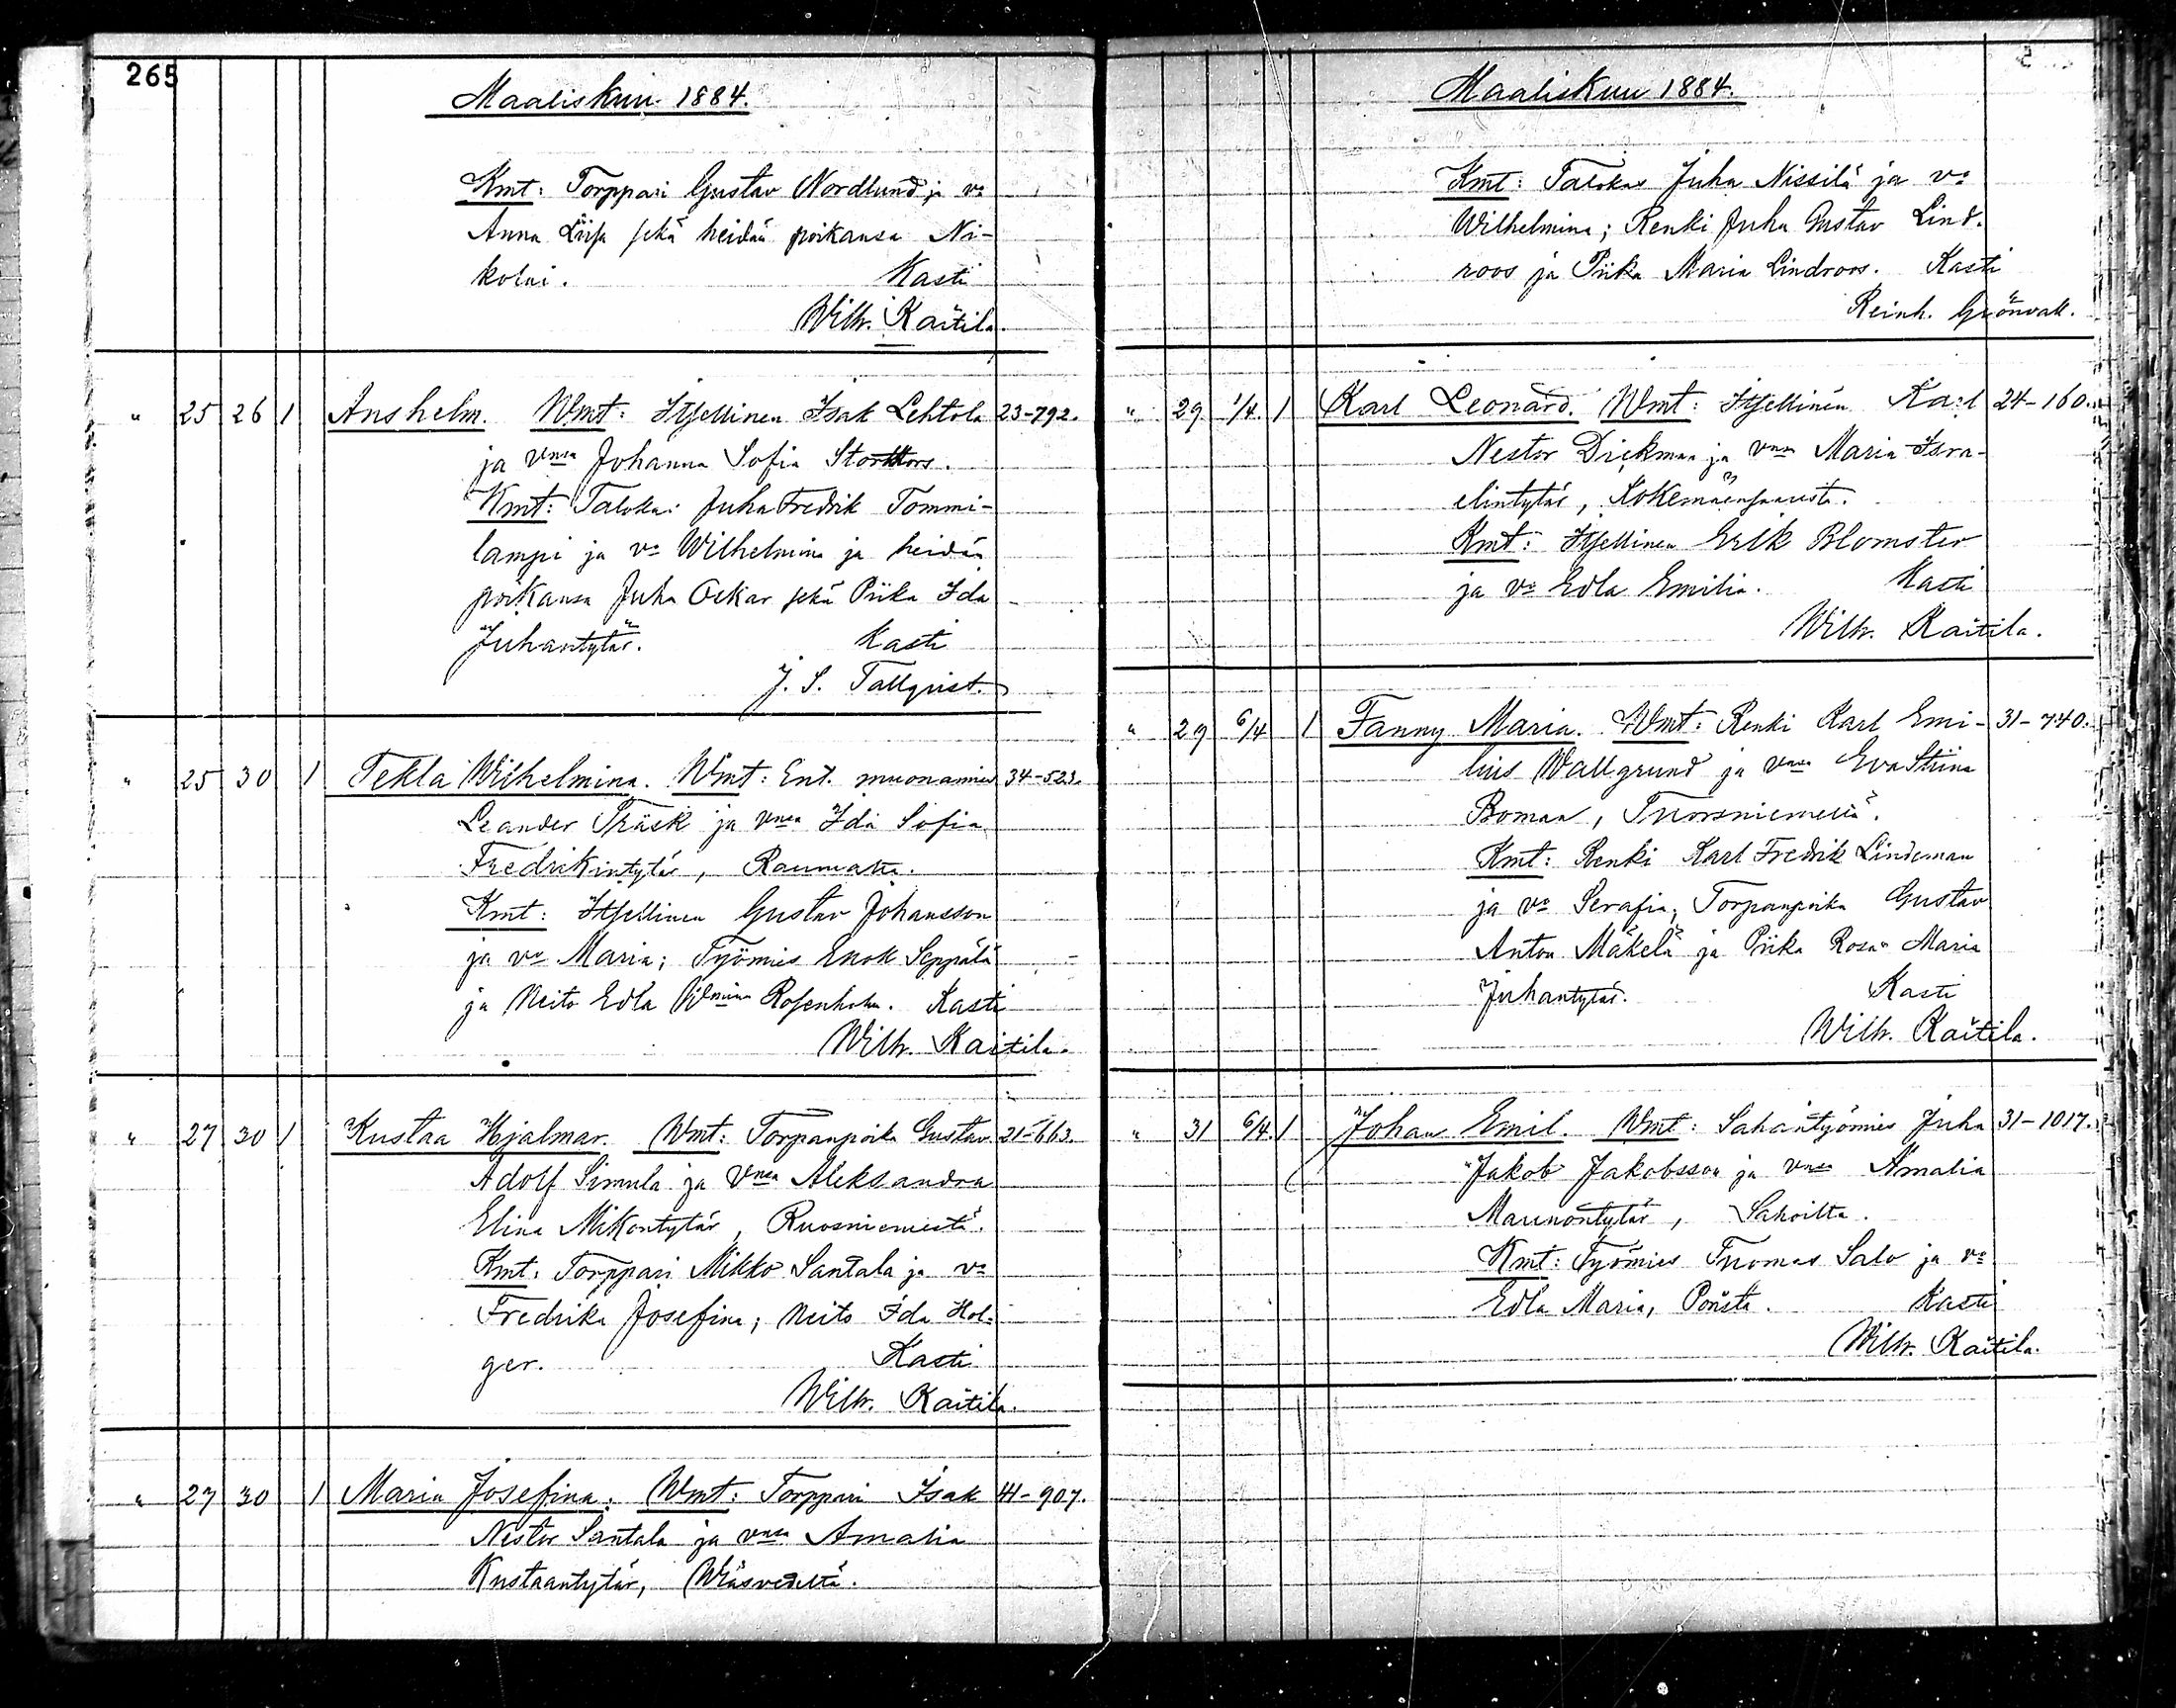 265
Maaliskuu 1884.
Kmt: Torppari Gustav Nordlund ja vo
Anna Liisa sekä heidän poikansa Ni-
kolai. Kasti
Wilh. Kaitila.
" 25 26 1 Anshelm. Wmt: Itsellinen Isak Lehtola 23-792.
ja vnsa Johanna Sofia Stor
Kmt: Talokas Juha Fredrik Tommi-
lampi ja vo Wilhelmina ja heidän
poikansa Juha Oskar sekä Piika Ida
Juhantytär. Kasti
J. S. Tallqvist.
" 25 30 1 Tekla Wilhelmina. Wmt: Ent. muonamies 34-523.
Leander Träsk ja vnsa Ida Sofia
Fredrikintytär, Raumalta.
Kmt: Itsellinen Gustav Johansson
ja vo Maria; Työmies Enok Seppälä
ja Neito Edla Wmina Rosenholm. Kasti
Wilh. Kaitila.
" 27 30 1 Kustaa Hjalmar. Wmt: Torpanpoika Gustav 21-663.
Adolf Simula ja vnsa Aleksandra
Elina Mikontytär, Ruosniemestä.
Kmt: Torppari Mikko Santala ja vo
Fredrika Josefina; Neito Ida Hol-
ger. Kasti
Wilh. Kaitila.
" 27 30 1 Maria Josefina. Wmt: Torppari Isak 41-907.
Nestor Santala ja vnsa Amalia
Kustaantytär,
Maaliskuu 1884.
Kmt: Talokas Juha Nissilä ja vo
Wilhelmina; Renki Juha Gustav Lind-
roos ja Piika Maria Lindroos. Kasti
Reinh. Grönvall.
" 29 1/4. 1 Karl Leonard. Wmt: Itsellinen Karl 24-160.
Nestor Dickman ja vnsa Maria Isra-
elintytär, Kokemäensaaresta.
Kmt: Itsellinen Erik Blomster
ja vo Edla Emilia. Kasti
Wilh. Kaitila.
" 29 6/4 1 Fanny Maria. Wmt: Renki Karl Emi- 31-740.
lius Vallgrund ja vnsa Eva Stiina
Boman, Tuorsniemeltä.
Kmt: Renki Karl Fredrik Lindeman
ja vo Serafia; Torpanpoika Gustav
Anton Mäkelä ja Piika Rosa Maria
Juhantytär. Kasti
Wilh. Kaitila.
" 31 6/4. 1 Johan Emil. Wmt: Sahantyömies Juha 31-1017.
Jakob Jakobsson ja vnsa Amalia
Maunontytär, Sahoilta.
Kmt: Työmies Tuomas Salo ja vo
Edla Maria, Porista. Kasti
Wilh. Kaitila.